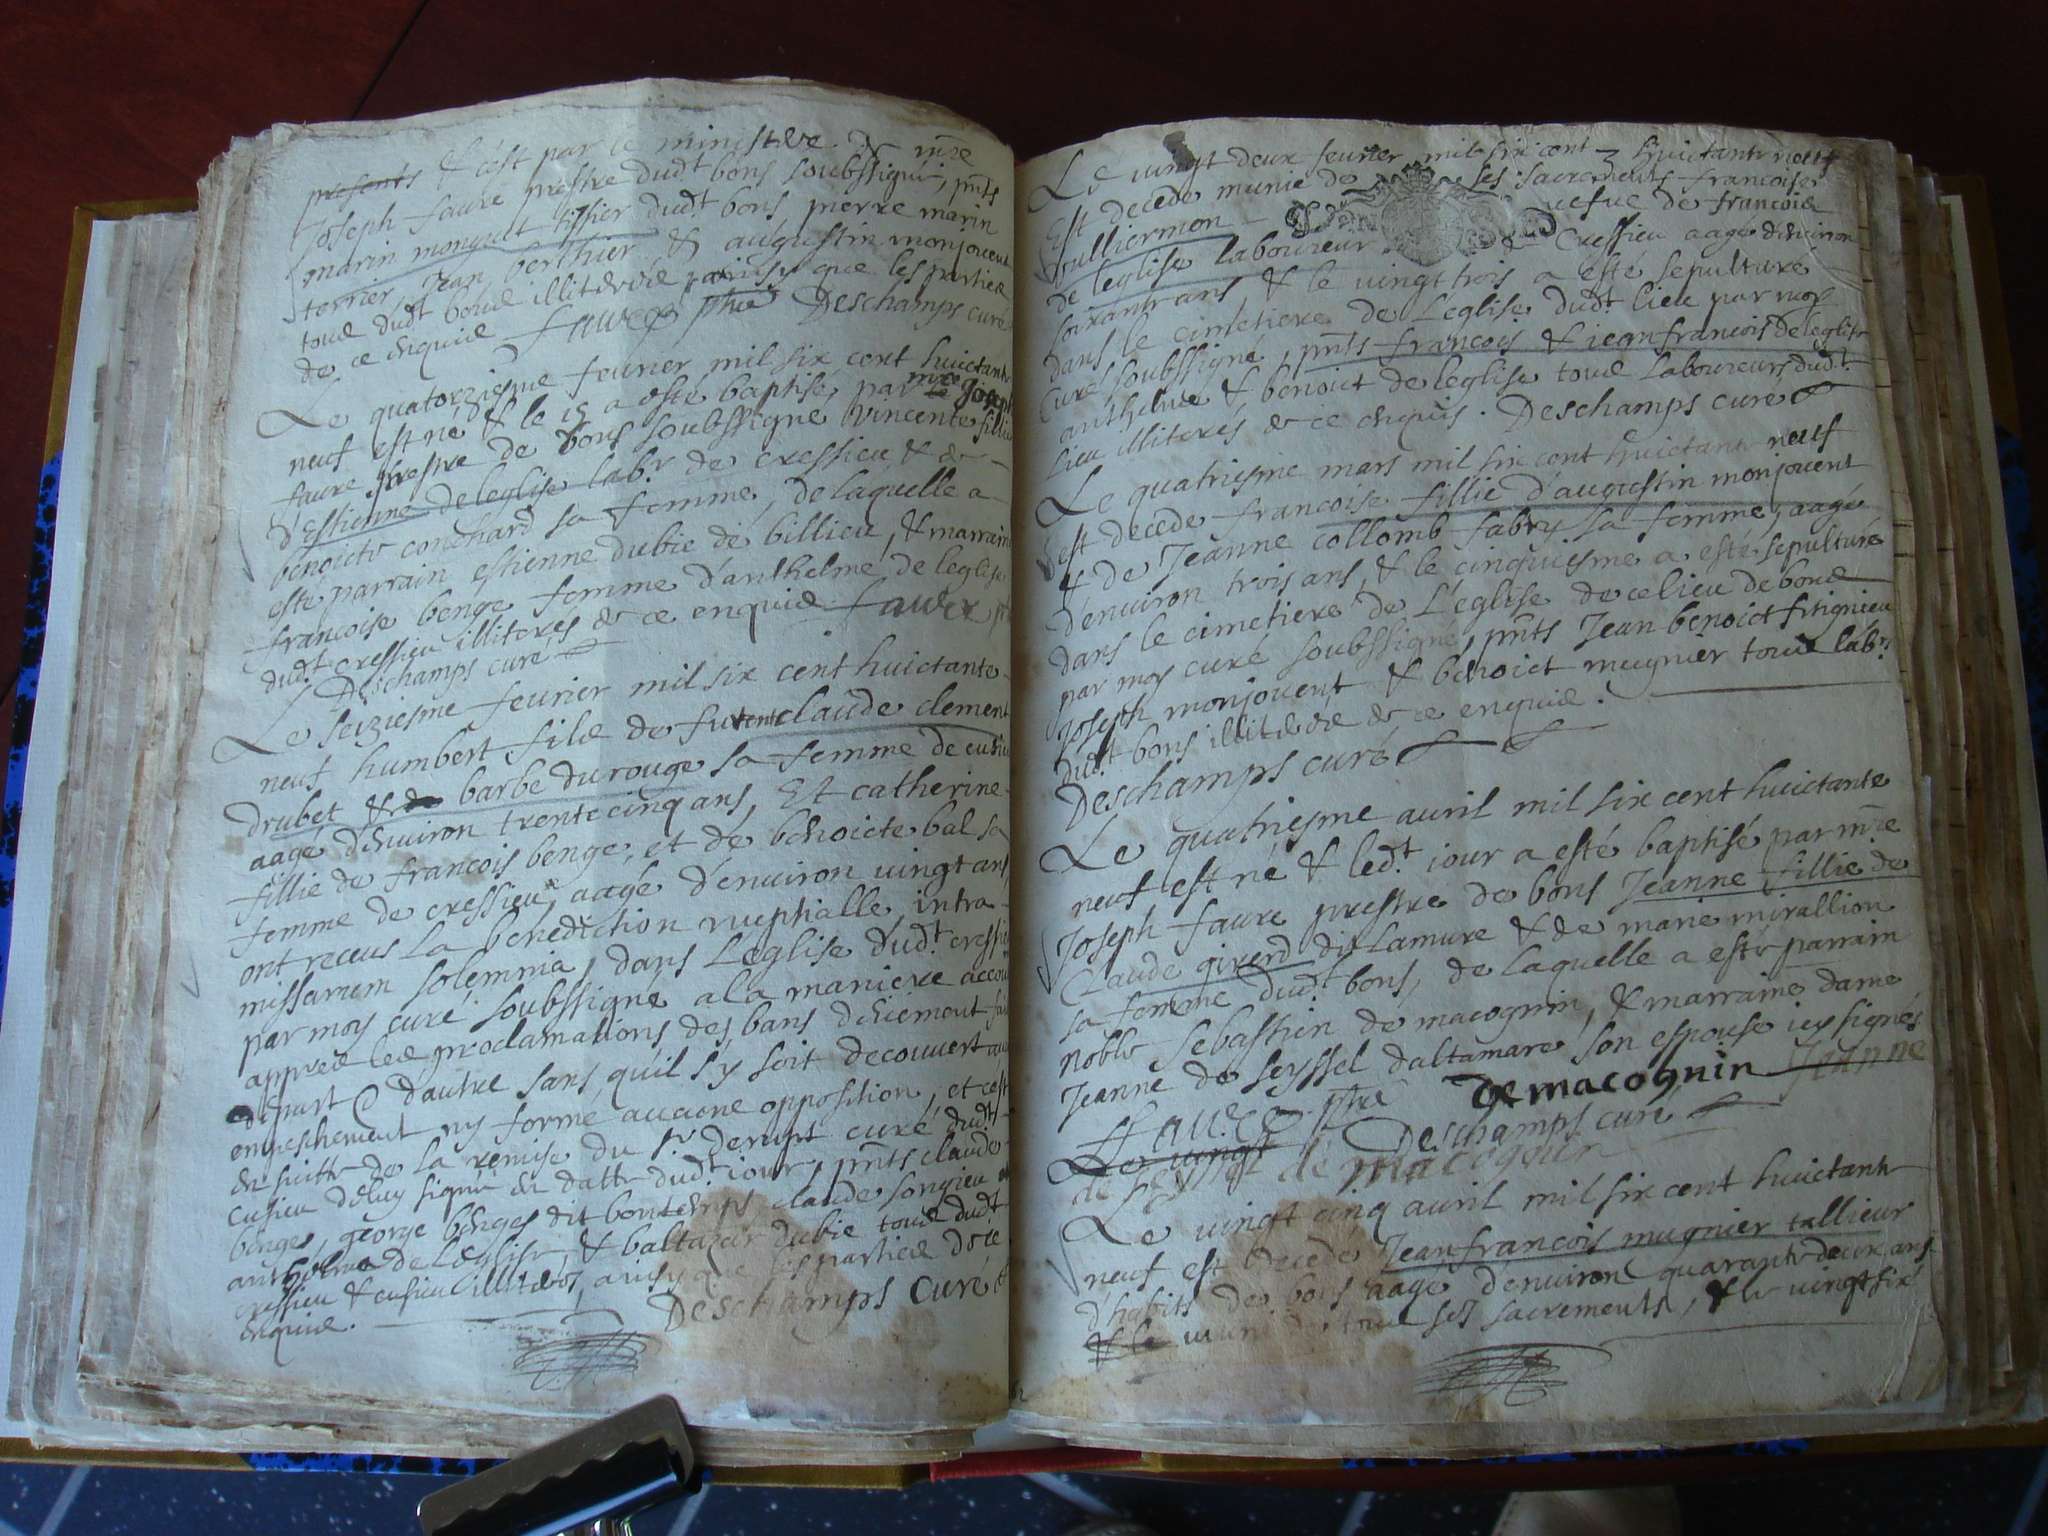 presents & c'est par le ministere de mre
Joseph faure prestre dudt bons soubssigné, pnts
marin monguet tissier dudt bons, pierre marin
terrier, Jean berthier & augustin monjouent
tous dudt bons illiteres ainsy que les parties
de ce enquis faure ptre Deschamps curé
Le quatorziesme feurier mil six cent huictante
neuf est né & le 15 a esté baptisé par mre Joseph
faure prestre de bons soubssigné vincente fillie
d'Estienne de leglise labr de cressieu & de
benoicte conchard sa femme, de laquelle a
esté parrain estienne dubie de billieu, & marraine
francoise benge femme d'anthelme de leglise
dudt cressieu illiterés de ce enquis faure ptre
Deschamps curé
Le seiziesme feurier mil six cent huictante
neuf humbert fils de fu claude clement
drubet & de barbe durouge sa femme de cusieu
aagé d'enuiron trente cinq ans, Et catherine
fillie de francois benge, et de benoicte bal sa
femme de cressieu, aagé d'enuiron uingt ans,
ont receus la benediction nuptialle intra
missarum solemnia, dans L'eglise dudt cressieu
par moy curé soubssigné a la maniere accou
appres les proclamations des bans deuement fai
de part & d'autre sans qu'il s'y soit decouuert au
empeschement ny formé aucune opposition, et c'est
en suitte de la remise du sr deruys curé dudt
cusieu de luy signé en datte dudt iour, pnts claude
benge, george benges dit bontemps claude songieu
anthelme de L'eglise, & baltazar dubie tous dudt
cressieu & cusieu illiterés, ainsy que les parties de ce
enquis.
Deschamps curé
Le uingt deux feurier mil six cent huictante neuf
Est decedé munie de ses sacrements francoise
uulliermon uefue de francois
de leglise laboureur de Cressieu aagé denuiron
soixante ans, & le uingt trois a esté sepulturé
dans le cimetiere de L'eglise dudt lieu par moy
curé soubssigné, pnts francois & iean francois de leglise
anthelme & benoict de leglise tous laboureurs dudt
lieu illiterés de ce enquis. Deschamps curé
Le quatriesme mars mil six cent huictante neuf
est decedé francoise fillie d'augustin monjouent
& de Jeanne collomb fabry sa femme, aagé
d'enuiron trois ans, & le cinquiesme a esté sepulturé
dans le cimetiere de L'eglise de ce lieu de bons
par moy curé soubssigné, pnts Jean benoict fitignieu
Joseph monjouent & benoict mugnier tous labrs
dudt bons illiteres de ce enquis.
Deschamps curé
Le quatriesme auril mil six cent huictante
neuf est né & ledt iour a esté baptisé par mre
Joseph faure prestre de bons Jeanne fillie de
Claude girerd dit Lamure & de marie mirallion
sa femme dudt bons, de laquelle a esté parrain
noble Sebastien de macognin, & marraine dame
Jeanne de seyssel daltamare son espouse icy signés
faure ptre de macognin Jeanne
Le uingt Deschamps curé
de seyssel de macognin
Le uingt cinq auril mil six cent huictante
neuf est decedé Jean francois mugnier tallieur
d'habits de bons aagé d'enuiron quarante deux ans
& le muni de tous ses sacrements, & le uingt six